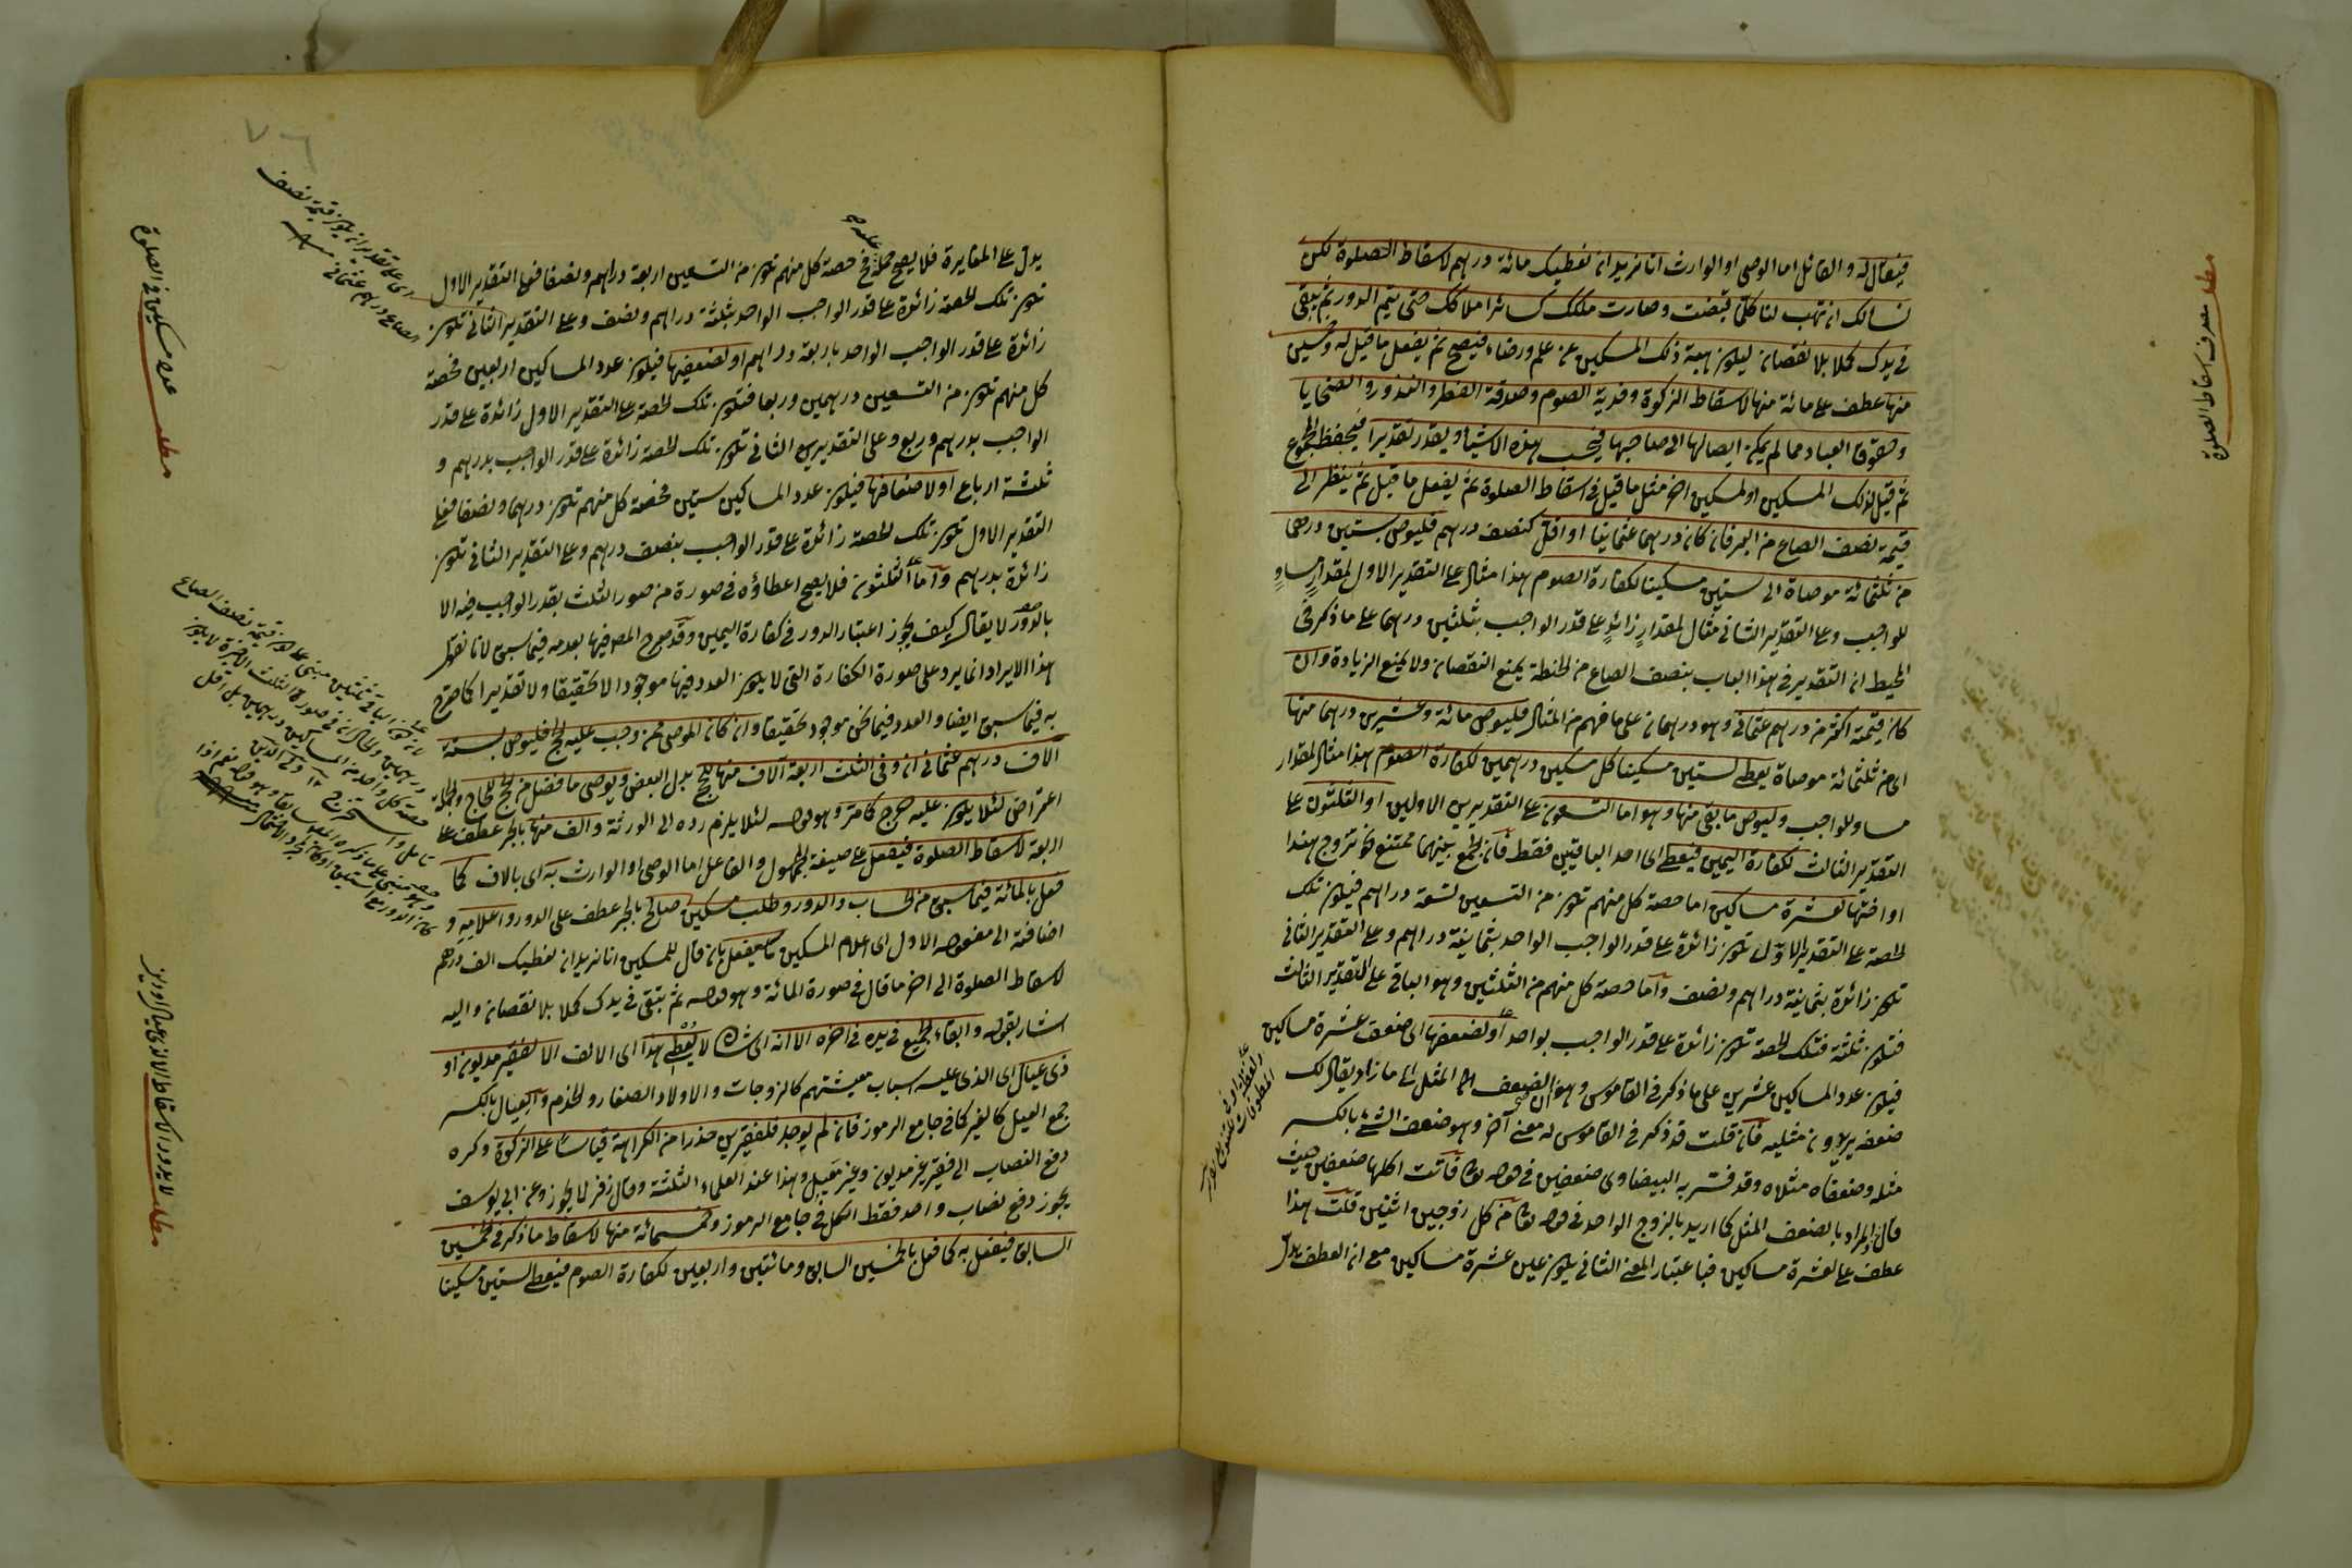 فيقال له والقائل اما الوصى او الوارث انا نريد ان نعطيك مائة درهم لاسقاط الصلوة لكن
نسالك ان تهب لنا كلما قبضت وصارت ملكك كسائر املاكك حتى يتم الدور ثم يبقى
فى يدك كملا بلا نقصان ليكون هبة ذلك المسكين عن علم ورضاء فيصح ثم يفعل ما قيل له وخمسين
منها عطف على مائة منها لاسقاط الزكوة وفدية الصوم وصدقة الفطر والنذور والضحايا
وحقوق العباد مما لم يمكن ايصالها الى صاحبها هذه الاشياء ويقدر تقديرا فيحفظ المجموع
ثم قيل لذلك المسكين او لمسكين اخر مثل ما قيل فى اسقاط الصلوة ثم يفعل ما قيل ثم ينظر الى
قيمة نصف الصاع من البر فان كان درهما عثمانيا او اقل كنصف درهم فليوص بستين درهما
من ثلثمائة موصاة الى ستين مسكينا لكفارة الصوم هذا مثال على التقدير الاول لمقدار مساو
للواجب وعلى التقدير الثانى مثال لمقدار زائد على قدر الواجب بثلثين درهما على ما ذكر فى
المحيط ان التقدير فى هذا الباب بنصف الصاع من الحنطة يمنع النقصان ولا يمنع الزيادة وان
كان قيمته اكثر من درهم عثمانى وهو درهمان على ما فهم من المثال فليوص مائة وعشرين درهما منها
اى من ثلثمائة موصاة يعطى لستين مسكينا كل مسكين درهمين لكفارة الصوم هذا مثال لمقدار
مساو للواجب وليوص ما بقى منها وهو اما التسعون على التقديرين الاولين او الثلثون على
التقدير الثالث لكفارة اليمين فيعطى اى احد الباقيين فقط فان الجمع بينهما ممتنع نحو تزوج هندا
او اختها لعشرة مساكين اما حصة كل منهم تكون من التسعين تسعة دراهم فيكون تلك
الحصة على التقدير الاول تكون زائدة على قدر الواجب الواحد بثمانية دراهم وعلى التقدير الثانى
تكون زائدة بثمانية دراهم ونصف واما حصة كل منهم من الثلثين وهو الباقى على التقدير الثالث
فتكون ثلثة فتلك الحصة تكون زائدة على قدر الواجب بواحد او لضعفها اى ضعف عشرة مساكين
فيكون عدد المساكين عشرين على ما ذكر فى القاموس وهو ان الضعف المثل الى ما زاد يقال لك
ضعفه يريدون مثليه فان قلت قد ذكر فى القاموس له معنى آخر وهو ضعف الشئ بالكسر
مثله وضعفاه مثلاه وقد فسر به البيضاوى ضعفين فى قوله تعالى فآتت اكلها ضعفين حيث
قال والمراد بالضعف المثل كما اريد بالزوج الواحد فى قوله تعالى من كل زوجين اثنين قلت هذا
عطف على لعشرة مساكين فباعتبار المعنى الثانى يكون عين عشرة مساكين مع ان العطف يدل
مطلب مصرف اسقاط الصلوة
يدل على المغايرة فلا يصح حمله عليه ح حصة كل منهم تكون من التسعين اربعة دراهم ونصفا فعلى التقدير الاول
تكون تلك الحصة زائدة على قدر الواجب الواحد بثلثة دراهم ونصف وعلى التقدير الثانى تكون
زائدة على قدر الواجب الواحد باربعة دراهم او لضعفيها فيكون عدد المساكين اربعين فحصة
كل منهم تكون من التسعين درهمين وربعا فتكون تلك الحصة على التقدير الاول زائدة على قدر
الواجب بدرهم وربع وعلى التقدير الثانى تكون تلك الحصة زائدة على قدر الواجب بدرهم و
ثلثة ارباع او لاضعافها فيكون عدد المساكين ستين فحصة كل منهم تكون درهما ونصفا فعلى
التقدير الاول تكون تلك الحصة زائدة على قدر الواجب بنصف درهم وعلى التقدير الثانى تكون
زائدة بدرهم واما الثلثون فلا يصح اعطاؤه فى صورة من صور الثلث بقدر الواجب فيه الا
بالدور لا يقال كيف يجوز اعتبار الدور فى كفارة اليمين وقد صرح المص فيها بعدمه فيما سبق لانا نقول
هذا الايراد انما يرد على صورة الكفارة التى لا يكون العدد فيها موجودا لا حقيقا ولا تقديرا كما صرح
به فيما سبق ايضا والعدد فيما نحن موجود حقيقا وان كان الموصى ممن وجب عليه الحج فليوص بستة
الاف درهم عثمانى ان وفى الثلث اربعة آلاف منها لحج بدل البعض ويوصى ما فضل من الحج للحاج والجملة
اعتراض لئلا يكون عليه حرج كما مر وهو قوله لئلا يلزم رده الى الورثة والف منها بالجر عطف على
اربعة لاسقاط الصلوة فيفعل على صيغة المجهول والفاعل اما الوصى او الوارث به اى بالاف كما
فعل بالمائة فيما سبق من الحساب والدور وطلب مسكين صالح بالجر عطف على الدور واعلامه و
اضافته الى مفعوله الاول اى اعلام المسكين ما يفعل بان قال للمسكين انا نريد ان نعطيك الف درهم
لاسقاط الصلوة الى اخر ما قال فى صورة المائة وهو قوله ثم يبقى فى يدك كملا بلا نقصان واليه
اشار بقوله وابقاء الجميع فى يده فى اخره الا انه اى شان لا يعطى هذا اى الالف الا لفقير مديون او
ذى عيال اى الذى عليه اسباب معيشتهم كالزوجات والاولاد الصغار والخدم والعيال بالكسر
جمع العيل كالغير كما فى جامع الرموز فان لم يوجد فلفقيرين حذرا من الكراهة قياسا على الزكوة وكره
دفع النصاب الى فقير غير مديون وغير معيل وهذا عند العلماء الثلثة وقال زفر لا يجوز وعن ابى يوسف
يجوز دفع نصاب واحد فقط الكل فى جامع الرموز وخمسمائة منها لاسقاط ما ذكر فى الخمسين
السابق فيفعل به كما فعل بالخمسين السابق ومائتين واربعين لكفارة الصوم فيعطى لستين مسكينا
اى على تقدير ان يكون قيمة نصف
الصاع درهم عثمانى
مطلب عدد مسكين فى الصلوة
مطلب لا يدور لاسقاط الا لذى عيال او
٧٦